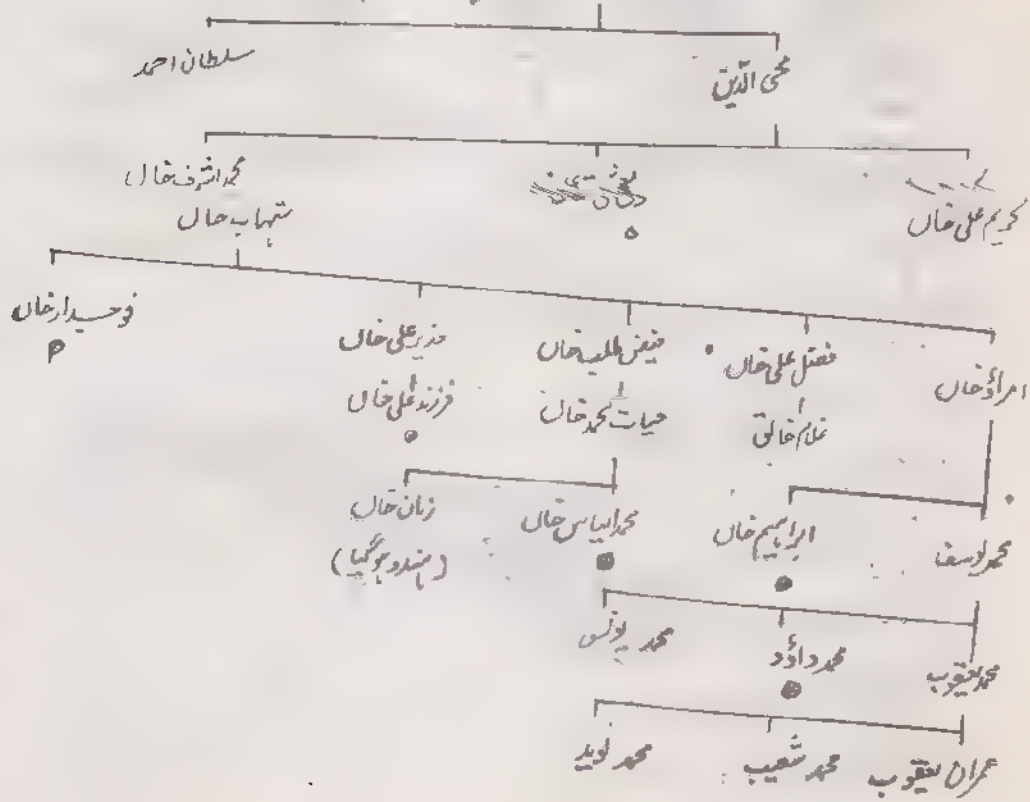 محی الدین سلطان احمد
کریم علی خاں محمد اشرف خاں
شہاب خاں
امراؤ خاں فضل علی خاں فیض طلب خاں وزیر علی خاں فوجیدار خاں
غلام خالق حیات محمد خاں فرزند علی خاں
محمد یوسف ابراہیم خاں محمد الیاس خاں زمان خاں
(ہندو ہو گیا)
محمد یعقوب محمد داؤد محمد یونس
عمران یعقوب محمد شعیب محمد نوید